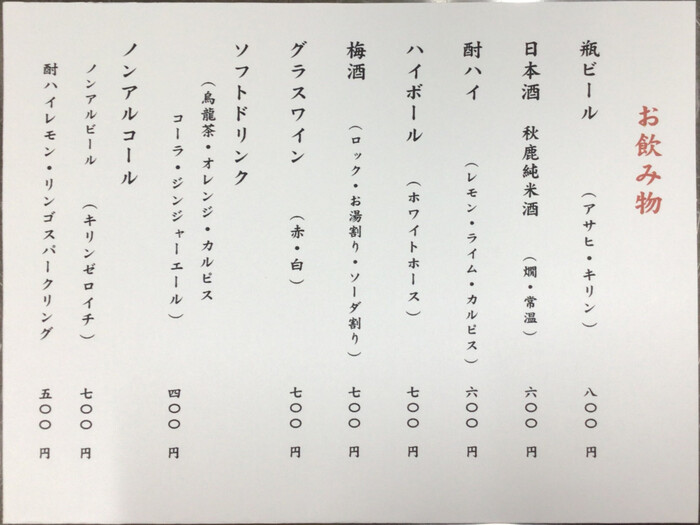 お飲み物
瓶ビール (アサヒ・キリン) 八〇〇 円
日本酒 秋鹿純米酒 (燗・常温) 六〇〇 円
酎ハイ (レモン・ライム・カルピス) 六〇〇 円
ハイボール (ホワイトホース) 七〇〇 円
梅酒 (ロック・お湯割り・ソーダ割り) 七〇〇 円
グラスワイン (赤・白) 七〇〇 円
ソフトドリンク
(烏龍茶・オレンジ・カルピス
コーラ・ジンジャーエール) 四〇〇 円
ノンアルコール
ノンアルビール (キリンゼロイチ) 七〇〇 円
酎ハイレモン・リンゴスパークリング 五〇〇 円